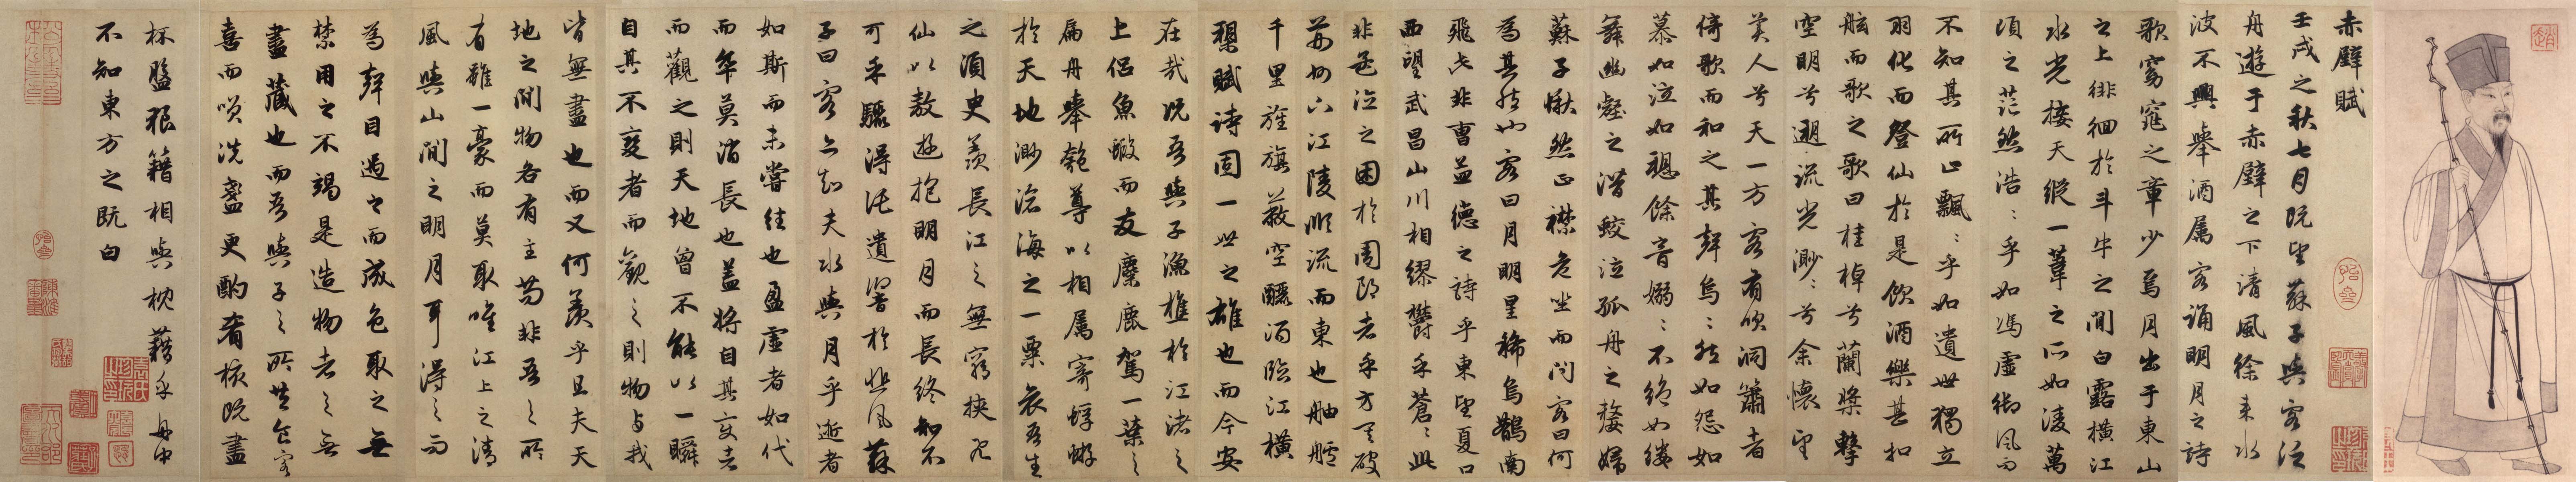 赤壁賦
壬戌之秋七月既望蘇子與客泛
舟遊于赤壁之下清風徐來水
波不興舉酒属客誦明月之詩
歌窈窕之章少焉月出于東山
之上徘徊於斗牛之間白露橫江
水光接天縱一葦之所如淩萬
頃之茫然浩〻乎如馮虛御風而
不知其所止飄〻乎如遺世獨立
羽化而登仙於是飲酒樂甚扣
舷而歌之歌曰桂棹兮蘭槳擊
空明兮遡流光渺〻兮余懷望
美人兮天一方客有吹洞簫者
倚歌而和之其聲烏〻然如怨如
慕如泣如愬餘音嫋〻不絕如縷
舞幽壑之潛蛟泣孤舟之嫠婦
蘇子愀然正襟危坐而問客曰何
為其然也客曰月明星稀烏鵲南
飛此非曹孟德之詩乎東望夏口
西望武昌山川相繆鬱乎蒼〻此
非孟德之困於周郎者乎方其破
荊州下江陵順流而東也舳艫
千里旌旗蔽空釃酒臨江橫
槊賦詩固一世之雄也而今安
在哉況吾與子漁樵於江渚之
上侶魚蝦而友麋鹿駕一葉之
扁舟舉匏尊以相属寄蜉蝣
於天地渺滄海之一粟哀吾生
之須臾羨長江之無窮挾飛
仙以敖遊抱明月而長終知不
可乎驟得託遺響於悲風蘇
子曰客亦知夫水與月乎逝者
如斯而未嘗往也盈虛者如代
而卒莫消長也蓋將自其變者
而觀之則天地曾不能以一瞬
自其不變者而觀之則物與我
皆無盡也而又何羨乎且夫天
地之間物各有主苟非吾之所
有雖一豪而莫取唯江上之清
風與山間之明月耳得之而
為聲目遇之而成色取之無
禁用之不竭是造物者之無
盡藏也而吾與子之所共食客
喜而笑洗盞更酌肴核既盡
杯盤狼籍相與枕藉乎舟中
不知東方之既白